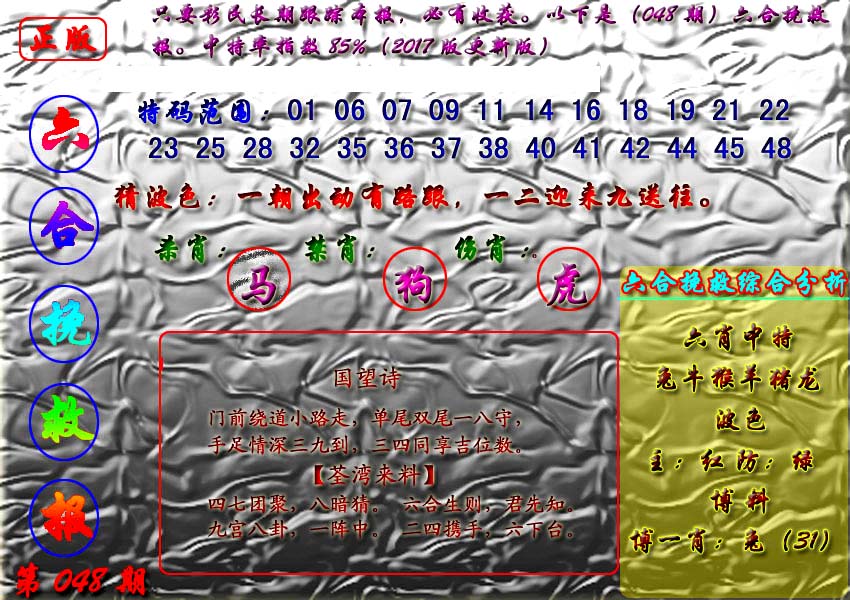 正版
只要彩民长期跟踪本报，必有收获。以下是（048期）六合挽救
报。中特率指数85%（2017版更新版）
六合挽救报
第048期
特码范围：01 06 07 09 11 14 16 18 19 21 22
23 25 28 32 35 36 37 38 40 41 42 44 45 48
猜波色：一朝出动有路跟，一二迎来九送往。
杀肖：马 禁肖：狗 伤肖：虎
国望诗
门前绕道小路走，单尾双尾一八守，
手足情深三九到，三四同享吉位数。
【荃湾来料】
四七团聚，八暗猜。 六合生则，君先知。
九宫八卦，一阵中。 二四携手，六下台。
六合挽救综合分析
六肖中特
兔牛猴羊猪龙
波色
主：红防：绿
博料
博一肖：兔（31）